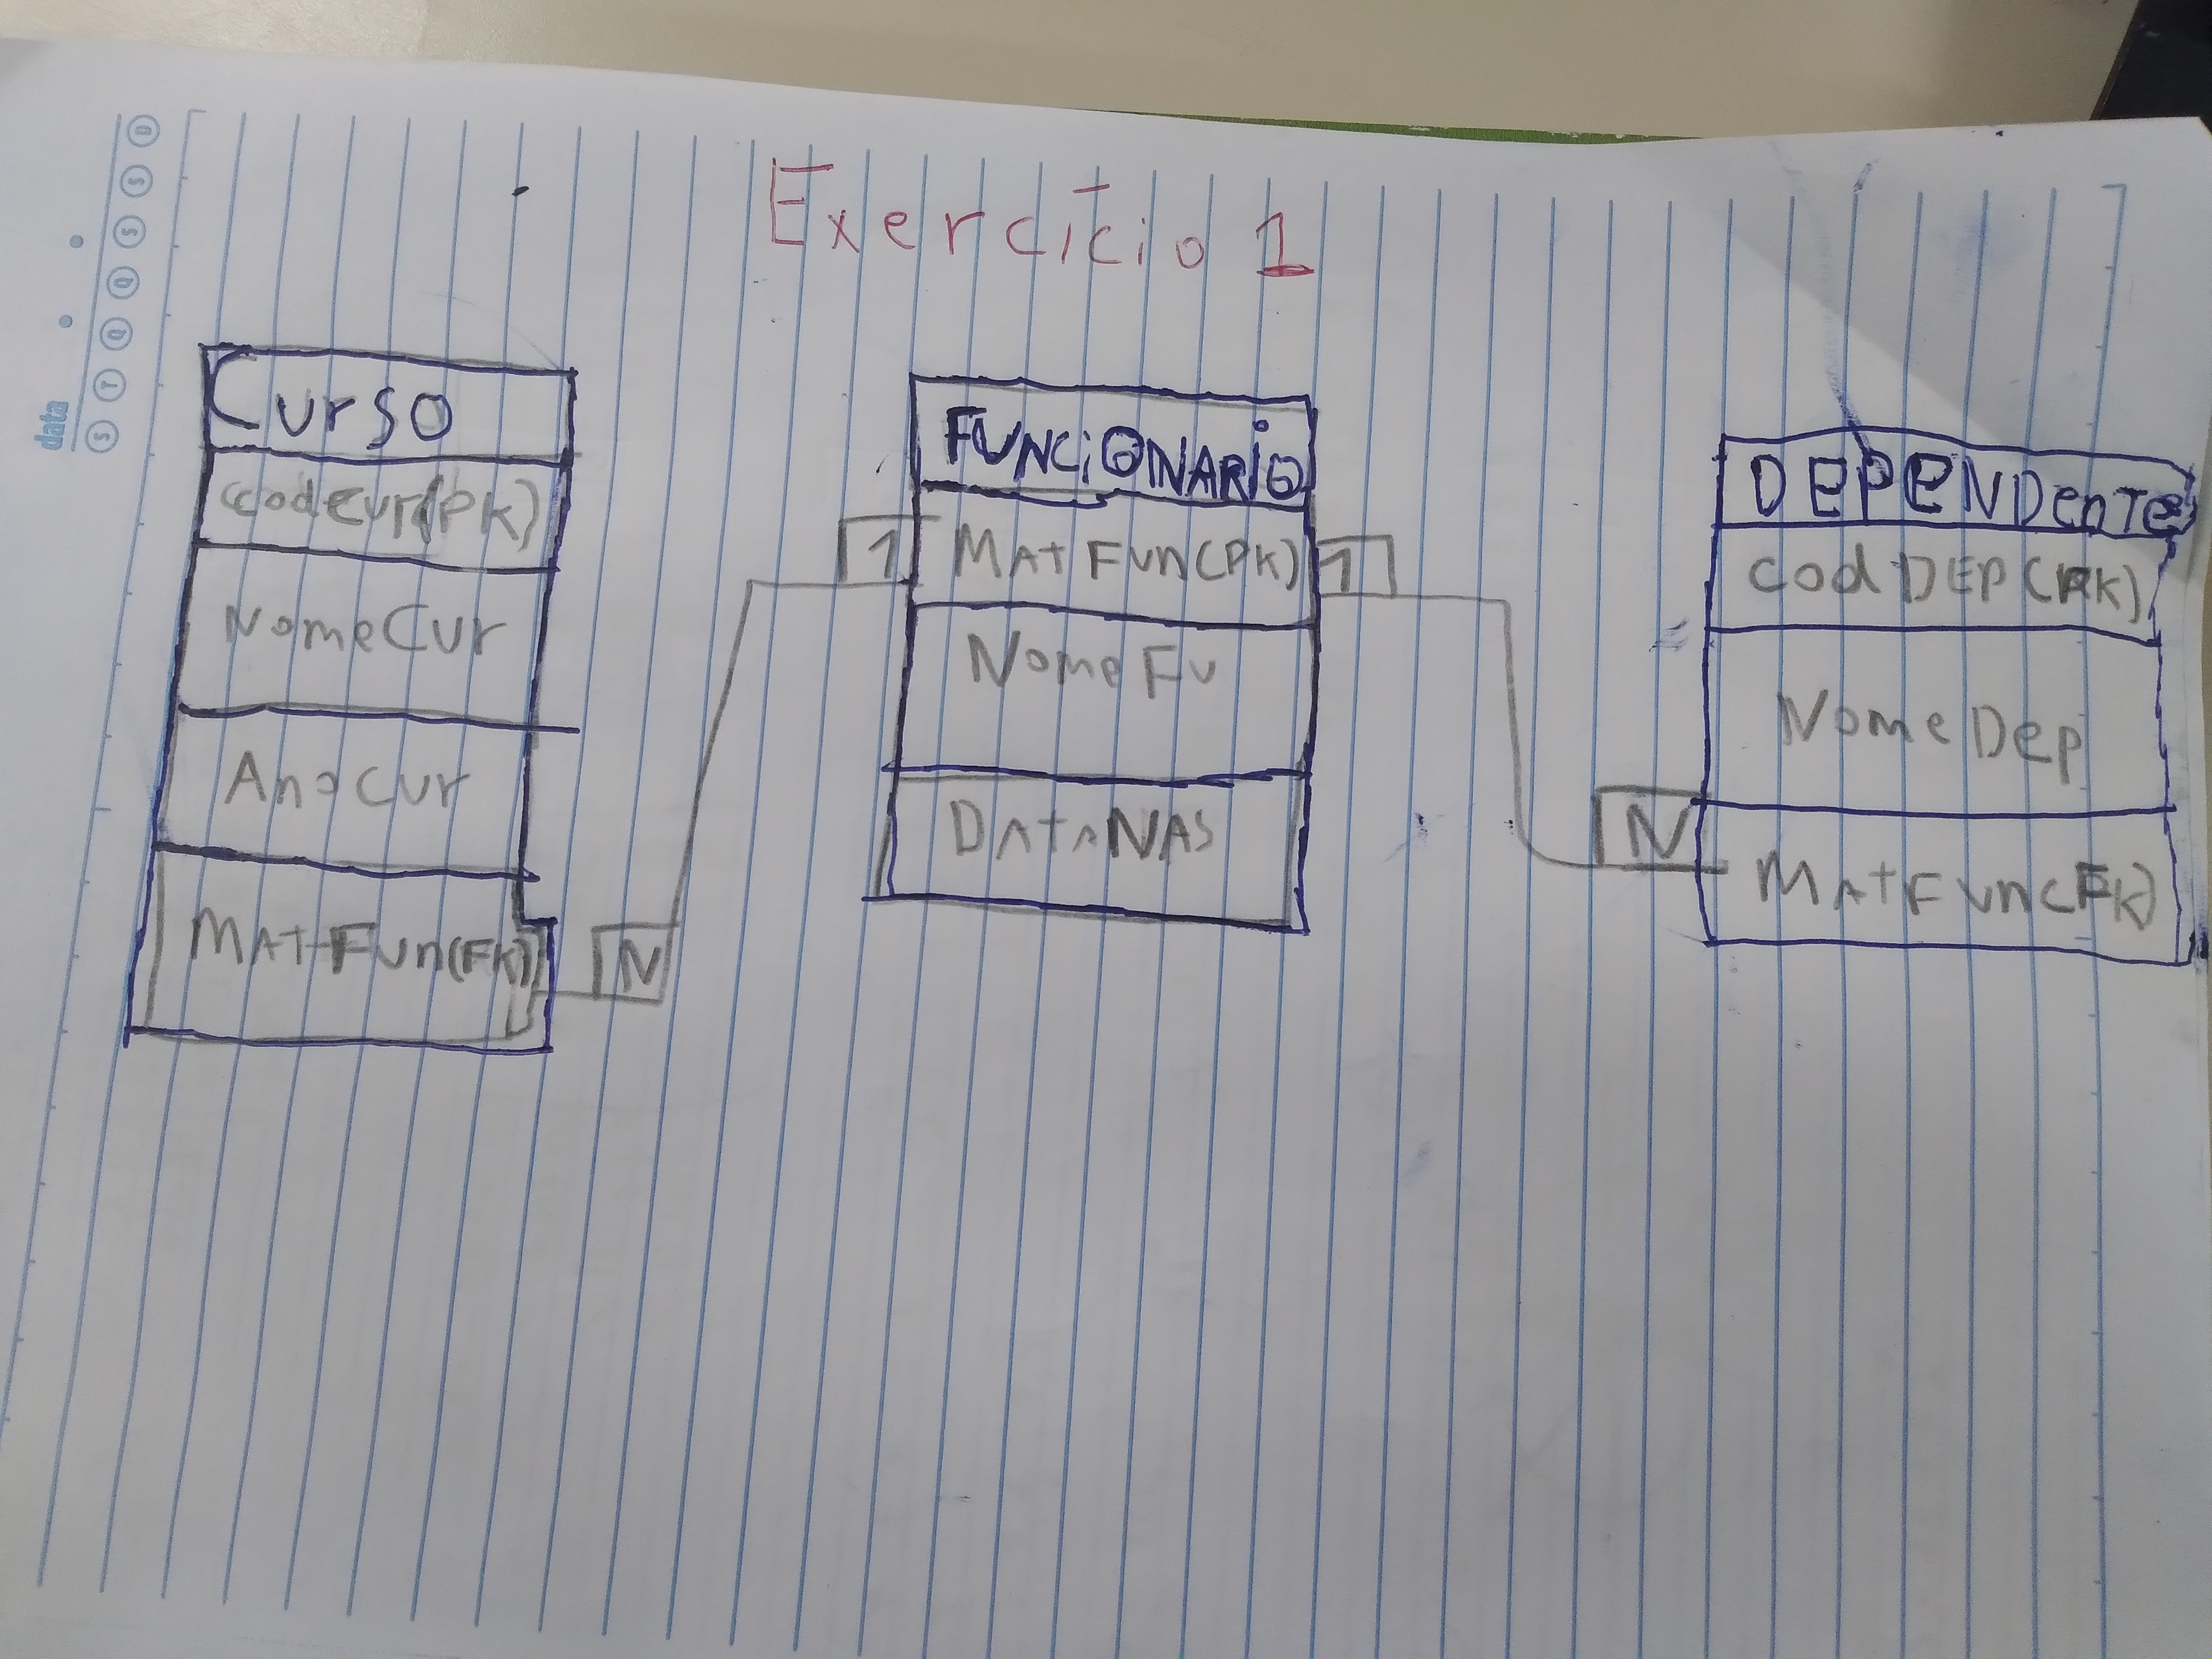 data
S T Q Q S S D
Exercício 1
Curso
codCur(PK)
NomeCur
AnoCur
MATFun(FK)
N
FUNCiONARiO
1
MATFun(PK)
1
NomeFu
DATANAS
DEPENDenTe
codDEP(PK)
NomeDep
N
MATFun(FK)